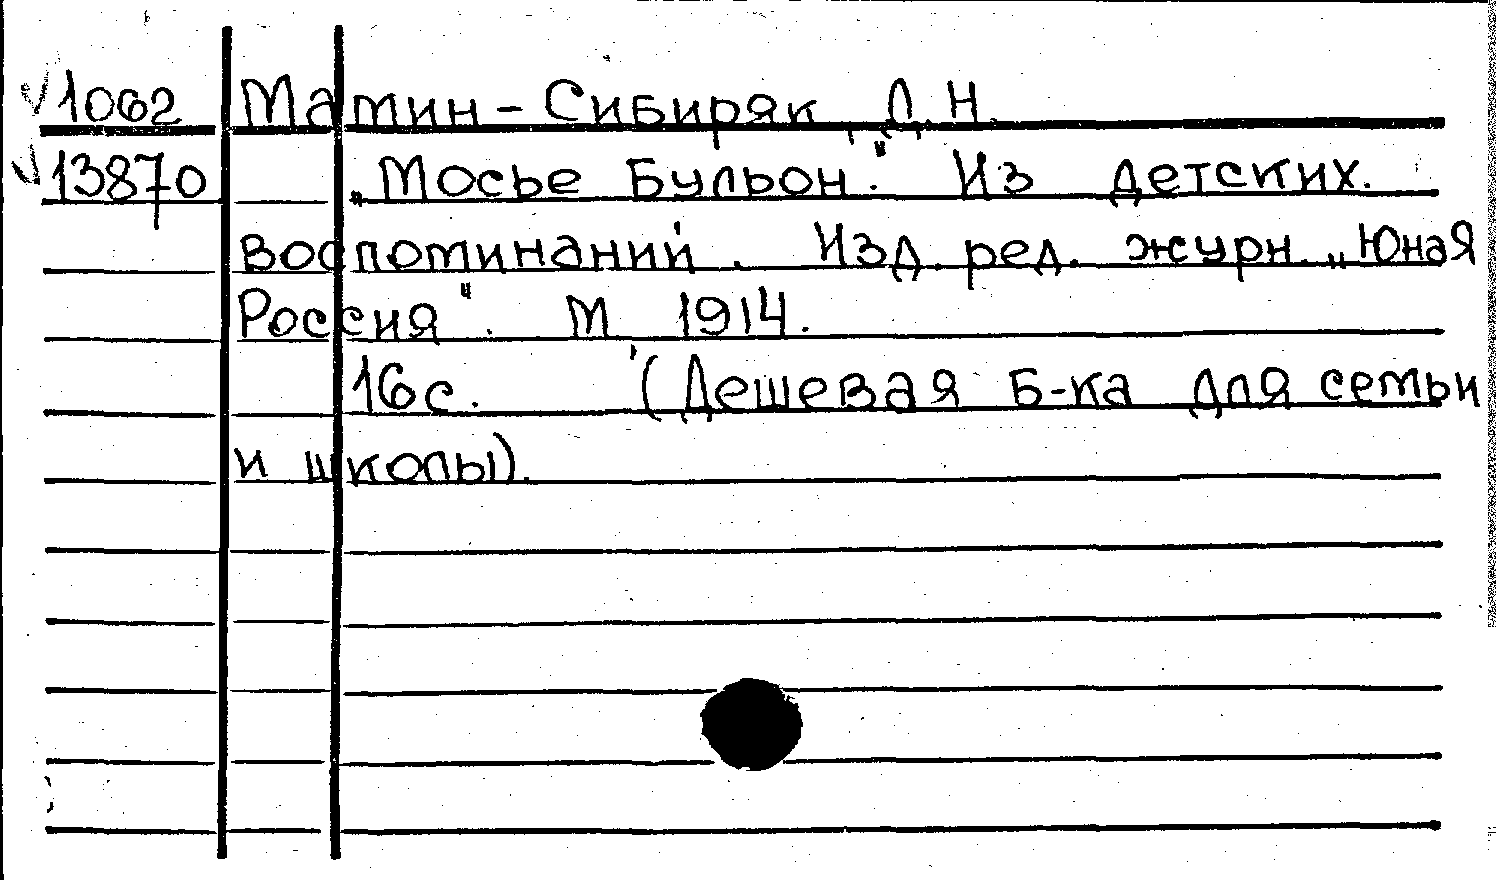 √1062 Мамин-Сибиряк, Д.Н.
√13870 „Мосье Бульон". Из детских
воспоминаний. Изд. ред. журн. „Юная
Россия". М 1914.
16с. (Дешевая Б-ка для семьи
и школы).